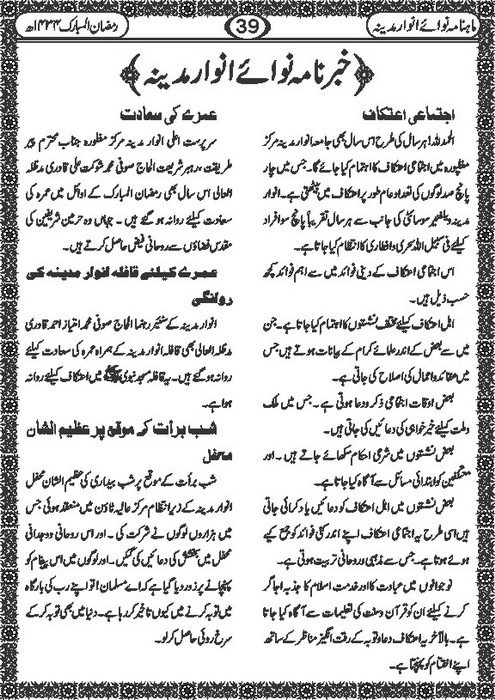 ماہنامہ نوائے انوار مدینہ
39
رمضان المبارک ۱۴۳۴ھ
خبر نامہ نوائے انوار مدینہ
اجتماعی اعتکاف
الحمدللہ! ہر سال کی طرح اس سال بھی جامعہ انوار مدینہ مرکز
مغلپورہ میں اجتماعی اعتکاف کا اہتمام کیا جائے گا۔ جس میں چار
پانچ صد لوگوں کی تعداد عام طور پر اعتکاف میں بیٹھتی ہے۔ انوار
مدینہ ویلفیئر سوسائٹی کی جانب سے ہر سال تقریباً پانچ سو افراد
کیلئے فی سبیل اللہ سحری و افطاری کا انتظام کیا جاتا ہے۔
اس اجتماعی اعتکاف کے دینی فوائد میں سے اہم فوائد کچھ
حسب ذیل ہیں۔
اہل اعتکاف کیلئے مختلف نشستوں کا اہتمام کیا جاتا ہے۔ جن
میں سے بعض کے اندر علمائے کرام کے بیانات ہوتے ہیں جس
میں عقائد و اعمال کی اصلاح کی جاتی ہے۔
بعض اوقات اجتماعی ذکر و دعا ہوتی ہے۔ جس میں ملک
و ملت کیلئے خیر خواہی کی دعائیں کی جاتی ہیں۔
بعض نشستوں میں شرعی احکام سکھائے جاتے ہیں۔ اور
معتکفین کو ابتدائی مسائل سے آگاہ کیا جاتا ہے۔
بعض نشستوں میں اہل اعتکاف کو دعائیں یاد کرائی جاتی
ہیں اسی طرح یہ اجتماعی اعتکاف اپنے اندر کتنی فوائد کو جمع کیے
ہوئے ہوتا ہے۔ جس سے مذہبی و روحانی تربیت ہوتی ہے۔
نوجوانوں میں عبادت کا اور خدمت اسلام کا جذبہ اجاگر
کرنے کیلئے ان کو قرآن و سنت کی تعلیمات سے آگاہ کیا جاتا
ہے۔ بالآخر یہ اعتکاف دعا و توبہ کے رقت انگیز مناظر کے ساتھ
اپنے اختتام کو پہنچتا ہے۔
عمرے کی سعادت
سرپرست اعلیٰ انوار مدینہ مرکز مغلپورہ جناب محترم پیر
طریقت، رہبر شریعت الحاج صوفی محمد شوکت علی قادری مدظلہ
العالی اس سال بھی رمضان المبارک کے اوائل میں عمرہ کی
سعادت کیلئے روانہ ہو گئے ہیں۔ جہاں وہ حرمین شریفین کی
مقدس فضاؤں سے روحانی فیض حاصل کرتے ہیں۔
عمرے کیلئے قافلہ انوار مدینہ کی
روانگی
انوار مدینہ کے سنئیر رہنما الحاج صوفی محمد امتیاز احمد قادری
مدظلہ العالی بھی قافلہ انوار مدینہ کے ہمراہ عمرہ کی سعادت کیلئے
روانہ ہو گئے ہیں۔ یہ قافلہ مسجد نبوی ﷺ میں اعتکاف کیلئے روانہ
ہوا ہے۔
شب برأت کے موقع پر عظیم الشان
محفل
شب برأت کے موقع پر شب بیداری کی عظیم الشان محفل
انوار مدینہ کے زیر انتظام مرکز عالیہ ٹاؤن میں منعقد ہوئی جس
میں ہزاروں لوگوں نے شرکت کی۔ اور اس روحانی و وجدانی
محفل میں بخشش کی دعائیں کی گئیں۔ اور لوگوں میں اس پیغام کو
پہنچانے پر زور دیا گیا ہے کہ اے مسلمان! تو اپنے رب کی بارگاہ
میں توبہ کرنے میں کیوں تاخیر کر رہا ہے۔ دنیا میں بھی توبہ کر کے
سرخ روئی حاصل کر لو۔